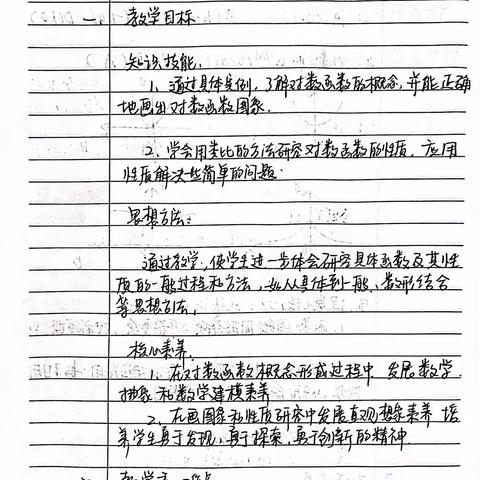 一、教学目标
知识技能:
1、通过具体实例,了解对数函数的概念,并能正确
地画出对数函数图象.
2、学会用类比的方法研究对数函数的性质,应用
性质解决些简单的问题.
思想方法:
通过教学,使学生进一步体会研究具体函数及其性
质的一般过程和方法,如从具体到一般、数形结合
等思想方法.
核心素养.
1、在对数函数概念形成过程中 发展数学
抽象和数学建模素养
2、在画图象和性质研究中发展直观想象素养 培
养学生勇于发现,勇于探索,勇于创新的精神.